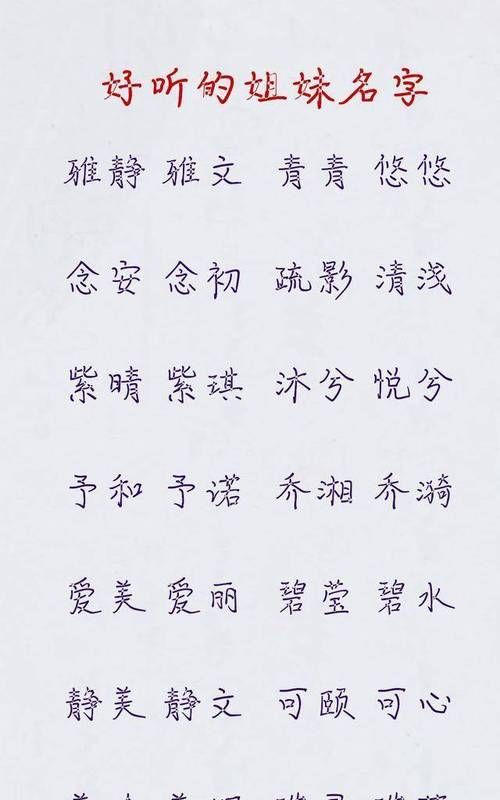 好听的姐妹名字
雅静 雅文 青青 悠悠
念安 念初 疏影 清浅
紫晴 紫琪 沐兮 悦兮
予和 予诺 乔湘 乔漪
爱美 爱丽 碧莹 碧水
静美 静文 可颐 可心